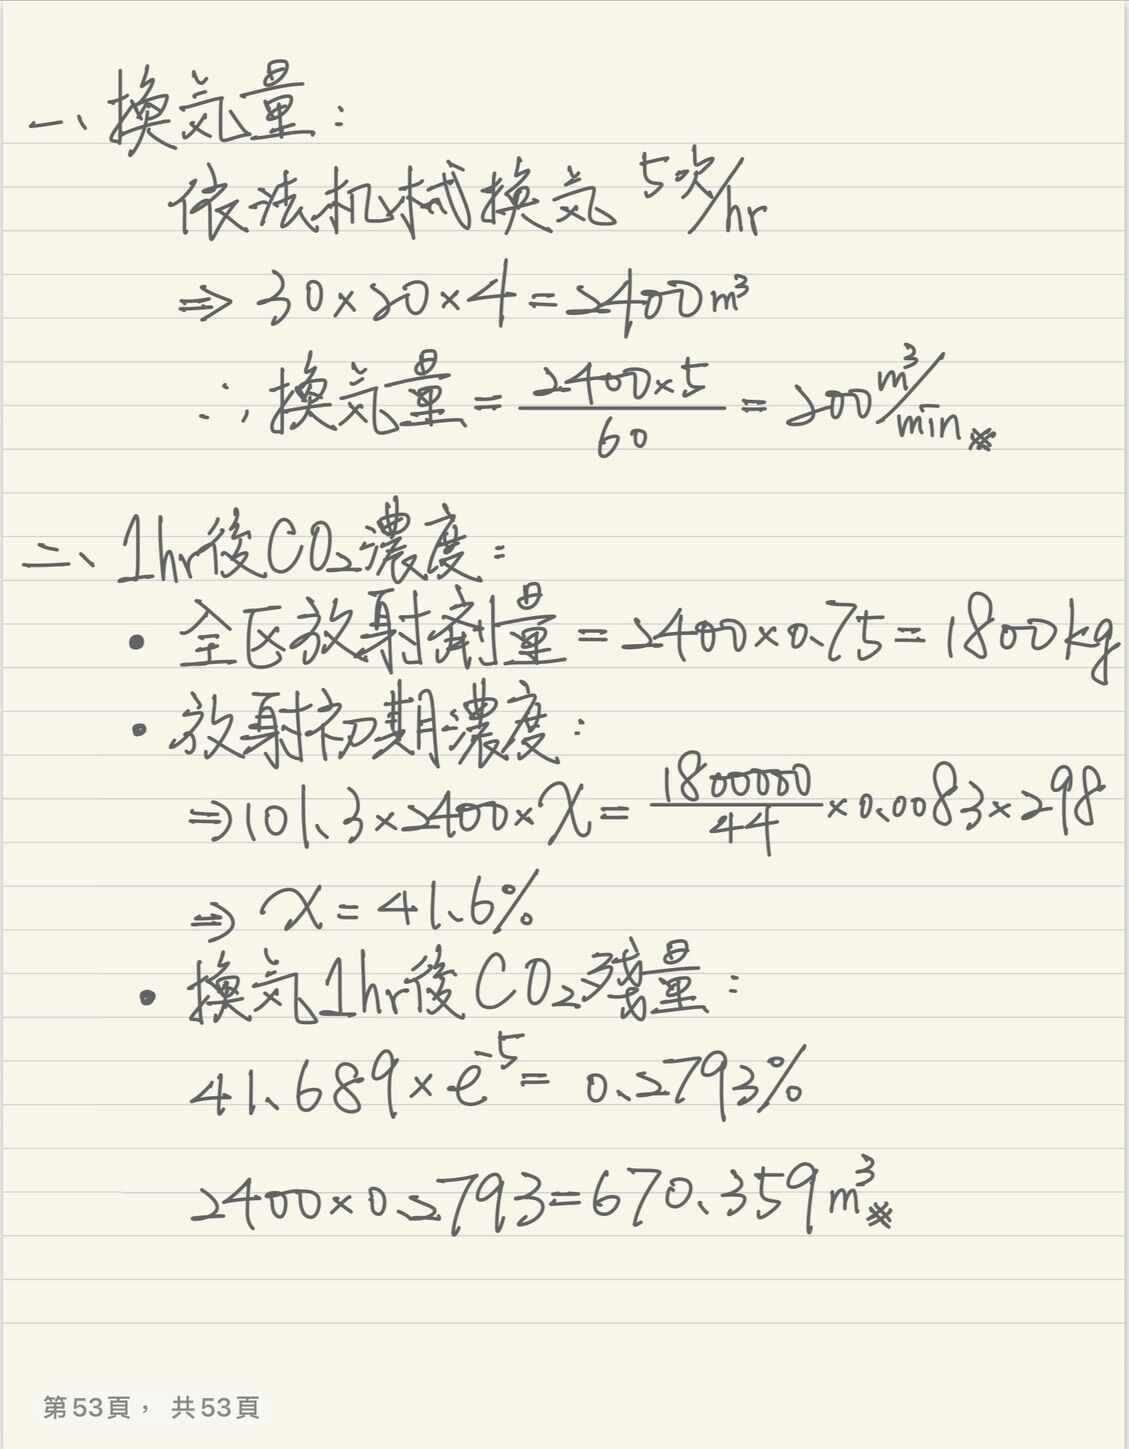 一、換気量：
依法机械換気 5次/hr
⇒ 30×20×4=2400m³
∴換気量 = 2400×5/60 = 200 m³/min ※
二、1hr後CO₂濃度：
• 全区放射剤量 = 2400×0.75 = 1800kg
• 放射初期濃度：
⇒101.3×2400×x = 1800000/44 ×0.0083×298
⇒ x = 41.6%
• 換気1hr後CO₂殘量：
41.689×e⁻⁵ = 0.2793%
2400×0.2793=670.359m³ ※
第53頁， 共53頁